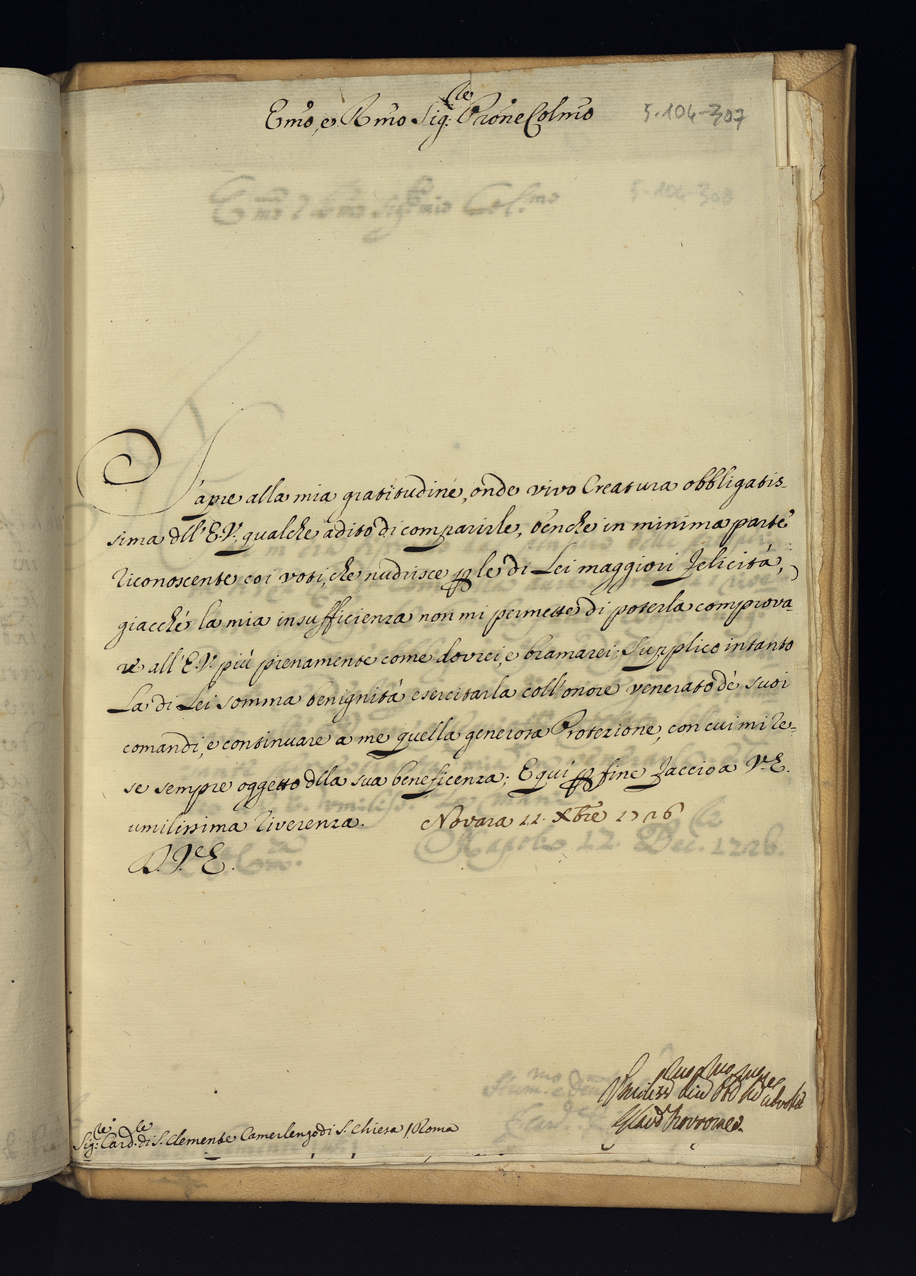 Emo, e Rmo Sig:le Prone Colmo
5-104-307
5-104-308
Sapre alla mia gratitudine, onde vivo Creatura obbligatis-
sima dll'E.V. qualche adito di comparirle, benche in minima parte
riconoscente coi voti, che nudrisce p le di Lei maggiori felicità,
giacchè la mia insufficienza non mi permette di poterla comprova-
re all'E.V. più pienamente come dovrei, e bramarei; Supplico intanto
La di Lei somma benignità esercitarla coll'onore venerato de suoi
comandi, e continuare a me quella generosa Protezione, con cui mi re-
se sempre oggetto dlla sua beneficenza; E qui p fine faccio a V.E.
umilissima riverenza. Novara 11. Xbre 1726
D. V.E.
Sig:le Card:le di S. Clemente Camerlengo di S. Chiesa / Roma